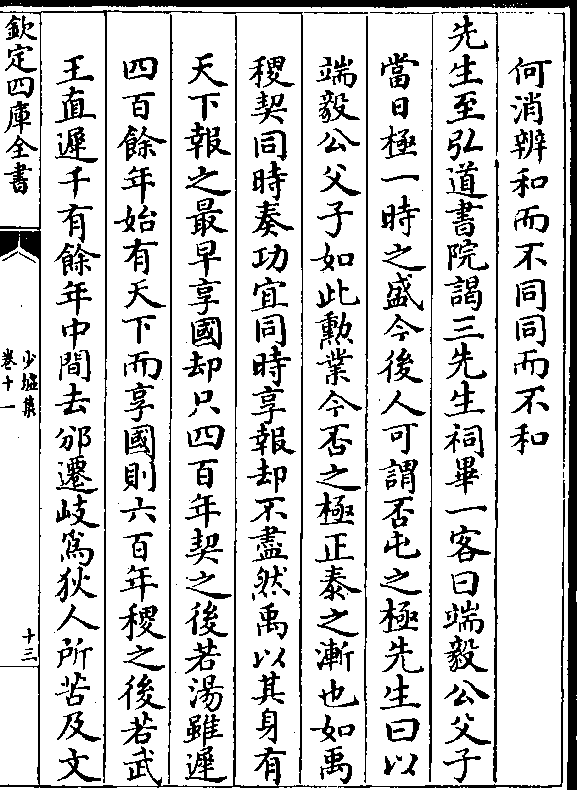 何消辨和而不同同而不和
先生至弘道書院謁三先生祠畢一客曰端毅公父子
當日極一時之盛今後人可謂否屯之極先生曰以
端毅公父子如此勲業今否之極正泰之漸也如禹
稷契同時奏功宜同時享報却不盡然禹以其身有
天下報之最早享國却只四百年契之後若湯雖遲
四百餘年始有天下而享國則六百年稷之後若武
王直遲千有餘年中間去邠遷岐爲狄人所苦及文
欽定四庫全書
少墟集
卷十一
十三